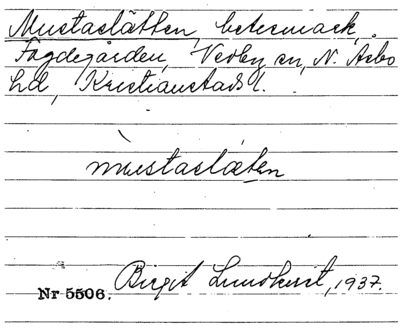 Mustaslätten, betesmark,
Fogdegården, Vedby sn, N. Åsbo
hd, Kristianstads l.
mustaslætən
Nr 5506. Birgit Lundkvist, 1937.